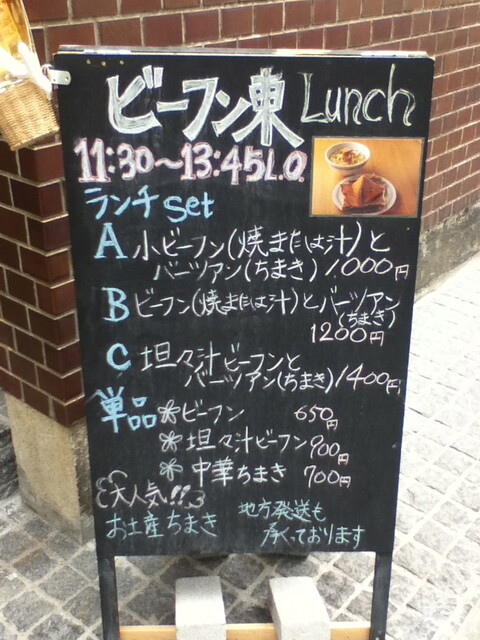 ビーフン東 Lunch
11:30～13:45L.O.
ランチset
A 小ビーフン(焼または汁)と
バーツアン(ちまき) 1000円
B ビーフン(焼または汁)とバーツアン
(ちまき)
1200円
C 坦々汁ビーフンと
バーツアン(ちまき) 1400円
単品 ビーフン 650円
坦々汁ビーフン 900円
中華ちまき 700円
大人気!!
お土産ちまき 地方発送も
承っております